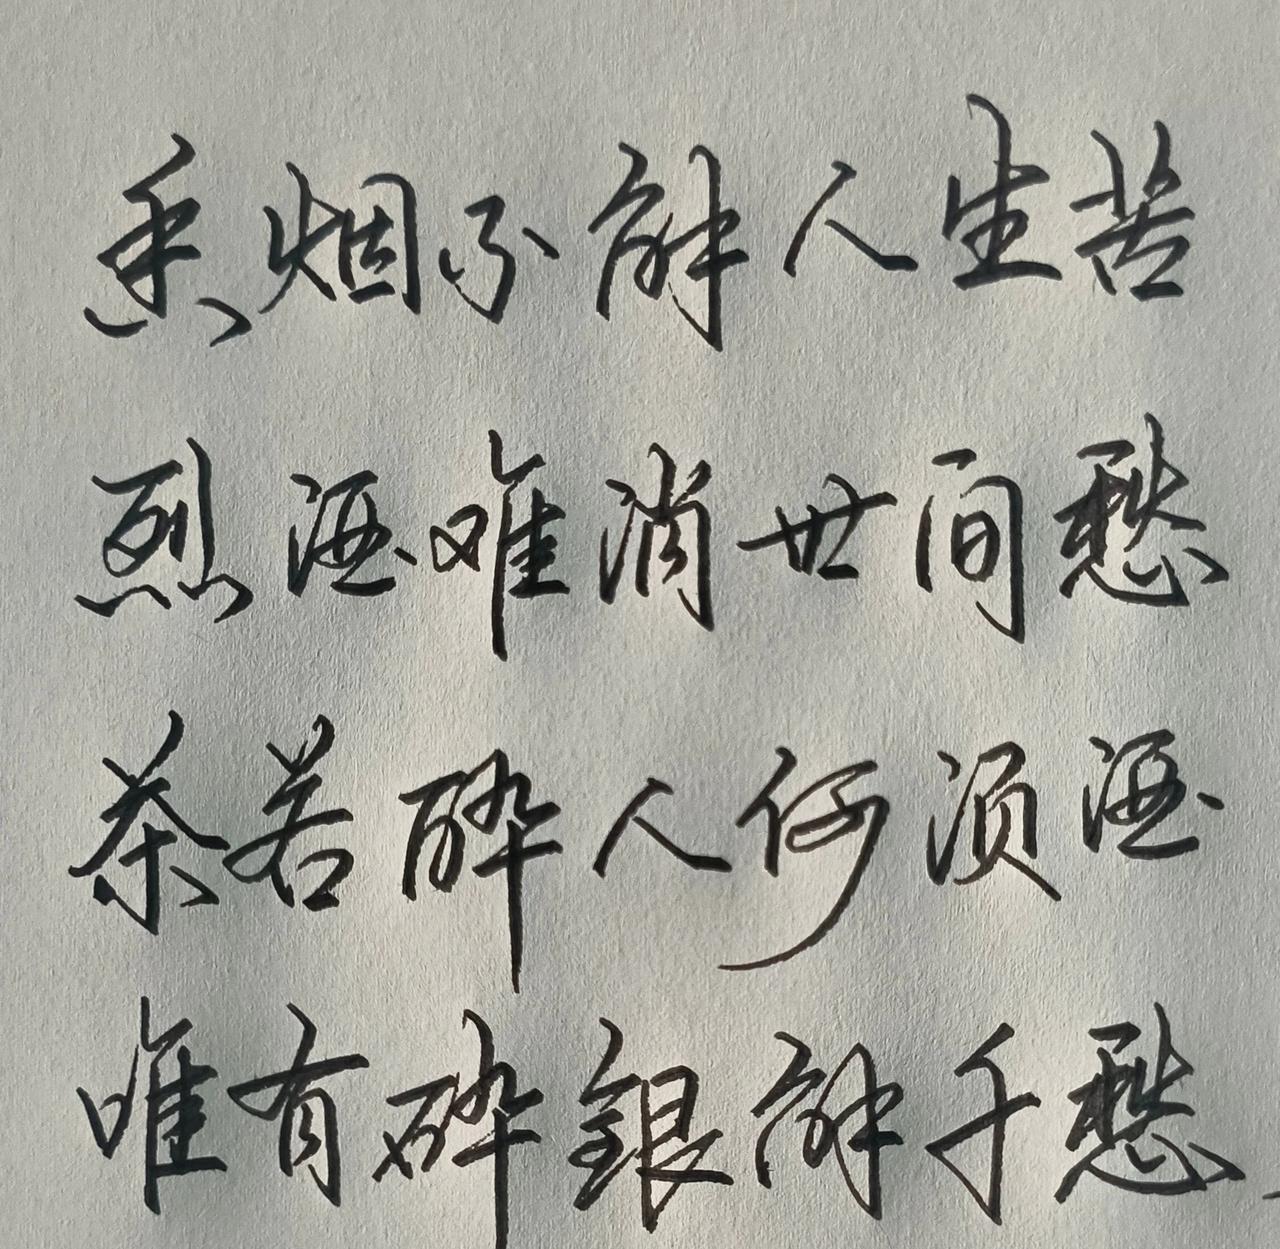 香烟不解人生苦
烈酒难消世间愁
茶若醉人何须酒
唯有碎銀解千愁